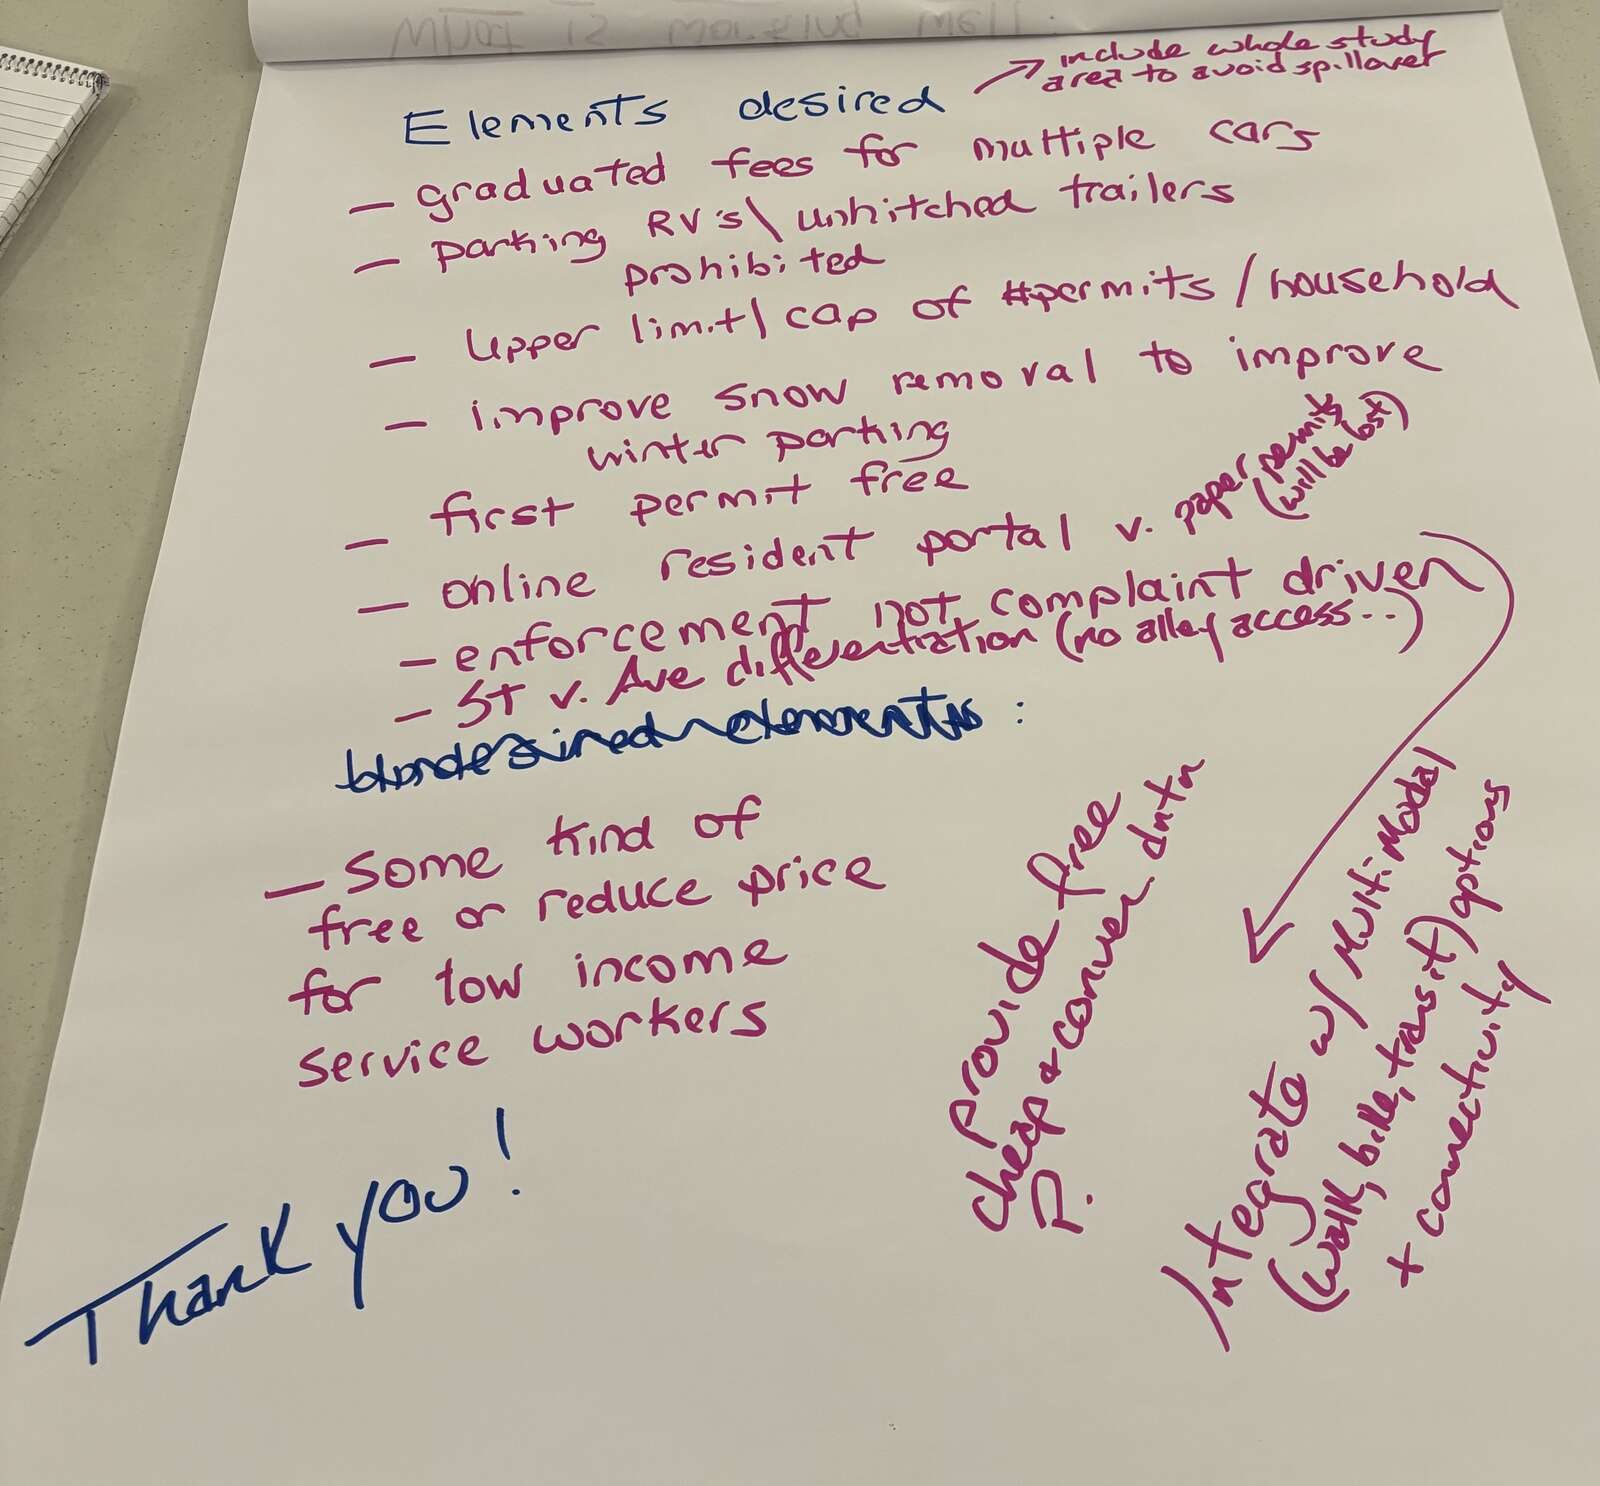 Elements desired
include whole study
area to avoid spillover
- graduated fees for multiple cars
- parking RV's\ unhitched trailers
prohibited
- upper limit/cap of #permits/household
- improve snow removal to improve
winter parking
- first permit free
- online resident portal v. paper permits
(will be lost)
- enforcement not complaint driven
- St v. Ave differentiation (no alley access..)
:
- some kind of
free or reduce price
for low income
service workers
provide free
cheap & conven. dntn
P.
Integrate w/ Multi-Modal
(walk, bike, transit) options
+ connectivity
Thank you!